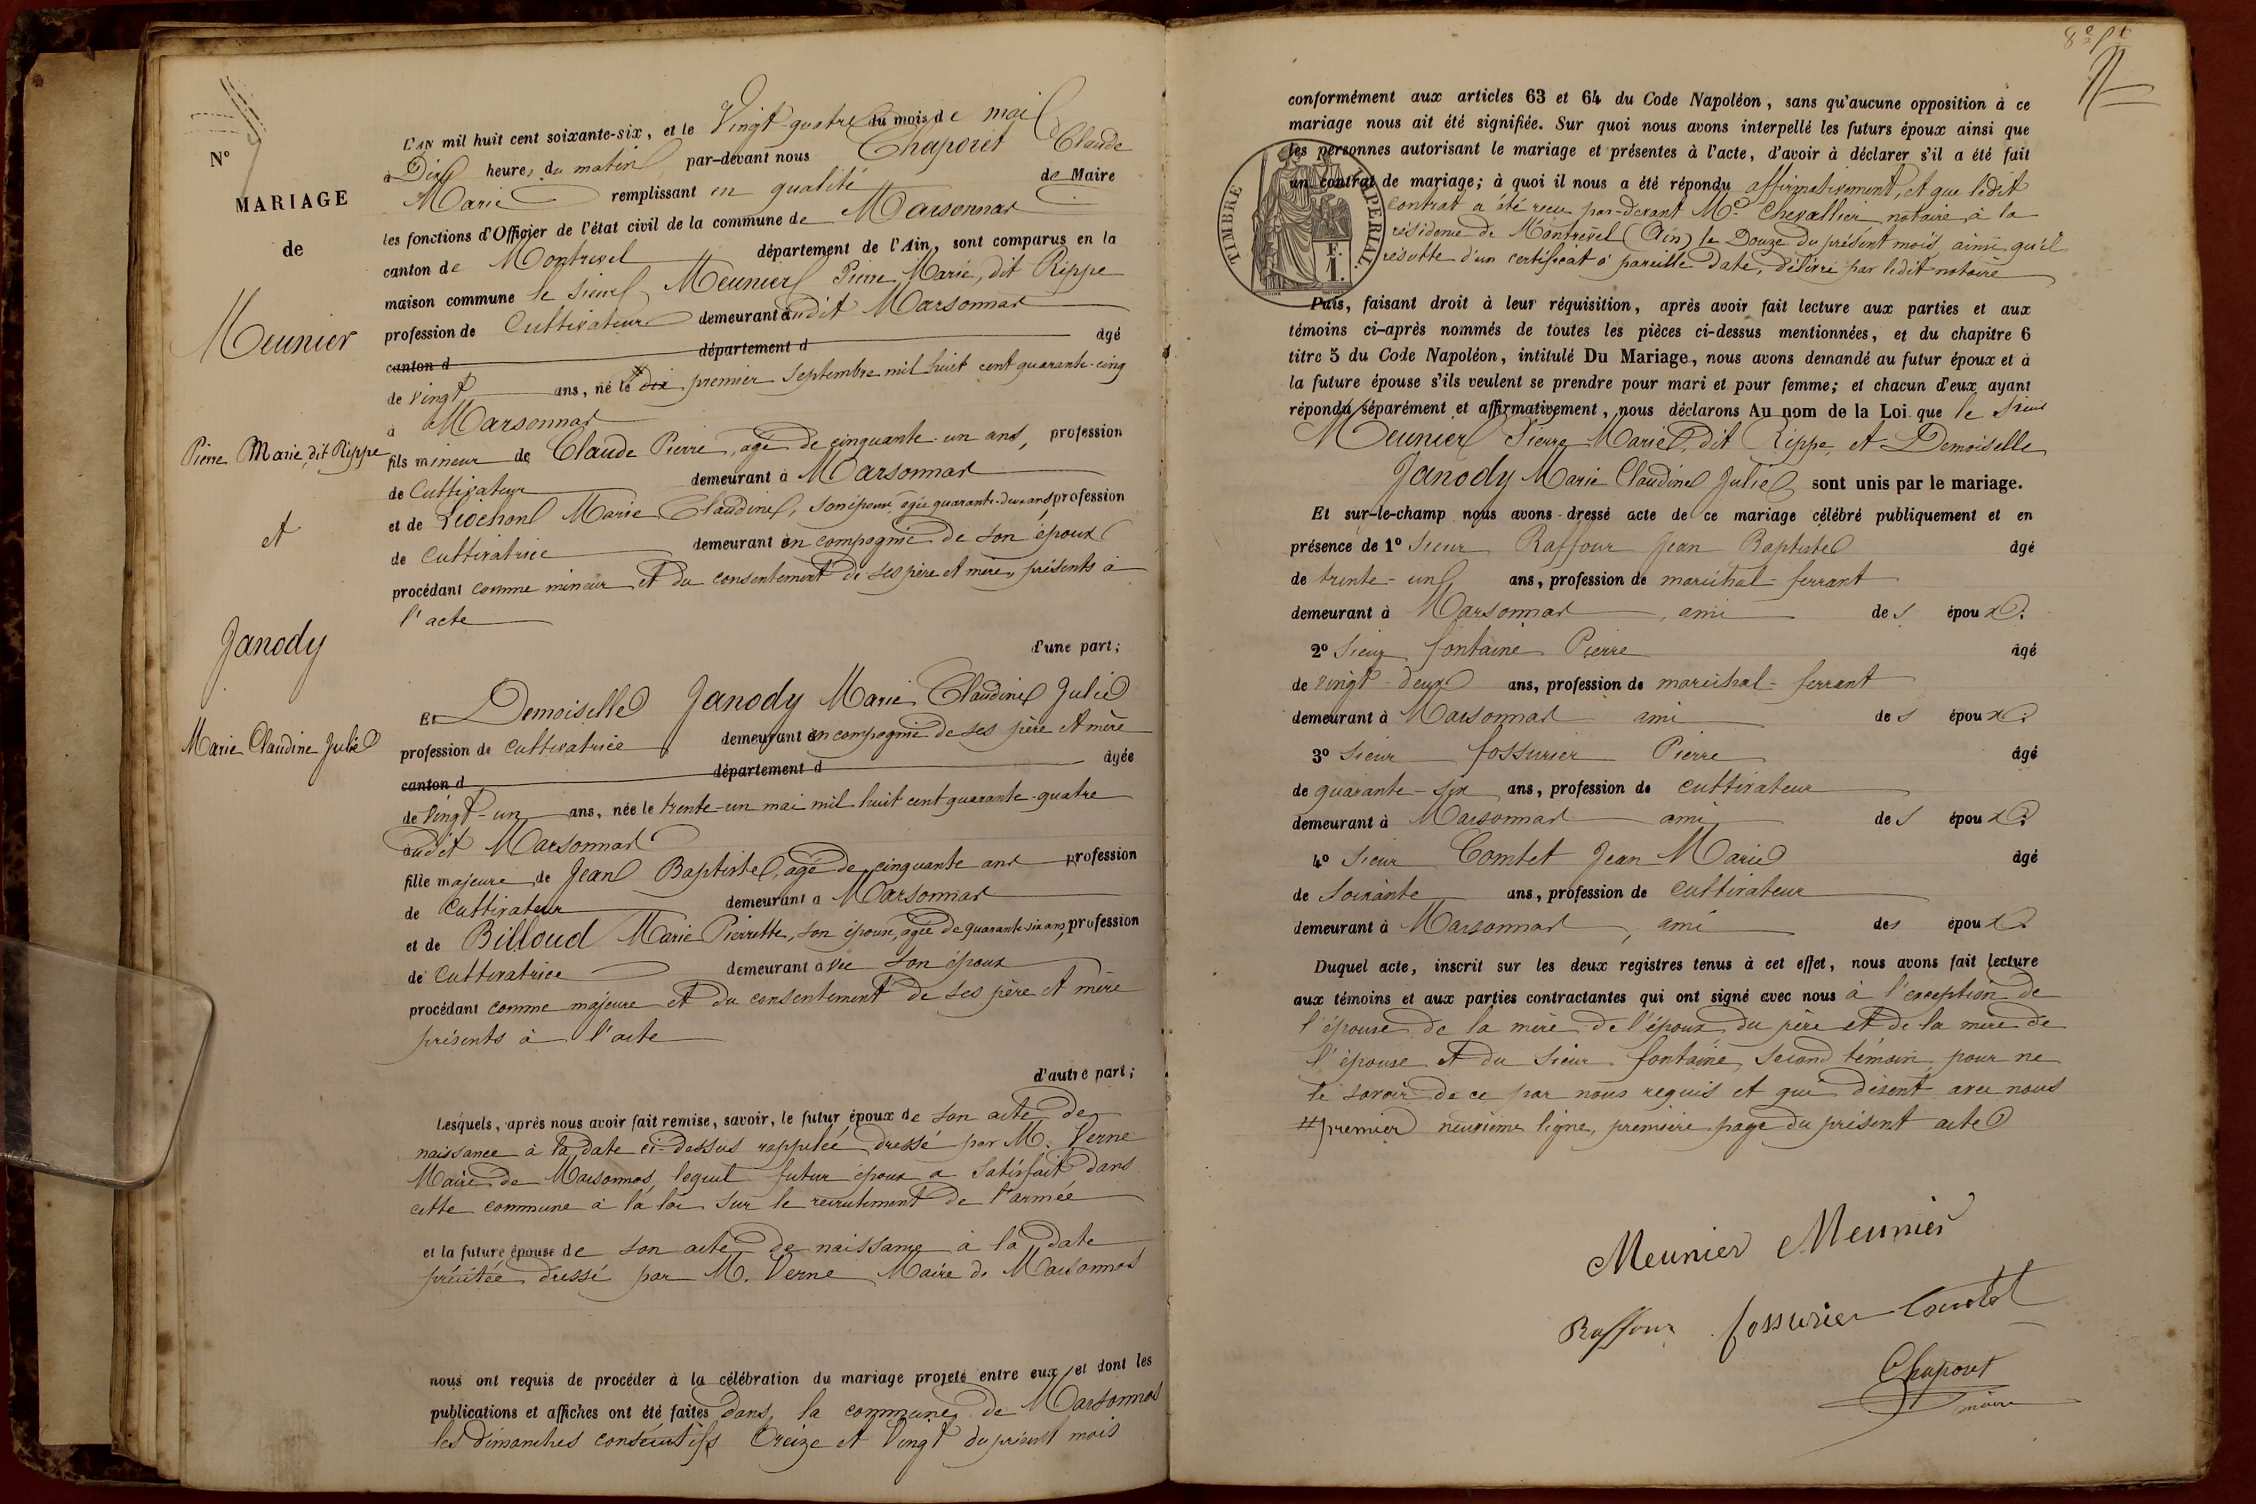 N° 9
MARIAGE
de
Meunier
Pierre Marie, dit Rippe
et
Janody
Marie Claudine Julie
L'AN mil huit cent soixante-six, et le Vingt-quatre du mois de mai
à Dix heures du matin, par-devant nous Chaporet Claude
Marie remplissant en qualité de Maire
les fonctions d'Officier de l'état civil de la commune de Marsonnas
canton de Montrevel département de l'Ain, sont comparus en la
maison commune le sieur Meunier Pierre Marie, dit Rippe
profession de Cultivateur demeurant audit Marsonnas
canton d département d âgé
de vingt ans, né le # dix premier Septembre mil huit cent quarante-cinq
à Marsonnas
fils mineur de Claude Pierre, âgé de cinquante-un ans, profession
de Cultivateur demeurant à Marsonnas
et de Liochon Marie Claudine, son épouse, âgée quarante-deux ans, profession
de Cultivatrice demeurant en compagnie de son époux
procédant comme mineur et du consentement de ses père et mère, présents à
l'acte
d'une part;
Et Demoiselle Janody Marie Claudine Julie
profession de cultivatrice demeurant en compagnie de ses père et mère
canton d département d âgée
de vingt-un ans, née le trente-un mai mil huit cent quarante-quatre
audit Marsonnas
fille majeure de Jean Baptiste, âgé de cinquante ans profession
de Cultivateur demeurant à Marsonnas
et de Billoud Marie Pierrette, son épouse, âgée de quarante-six ans, profession
de Cultivatrice demeurant avec son époux
procédant comme majeure et du consentement de ses père et mère
présents à l'acte
d'autre part;
Lesquels, après nous avoir fait remise, savoir, le futur époux de son acte de
naissance à la date ci-dessus rappelée dressé par M. Verne
Maire de Marsonnas, lequel futur époux a satisfait dans
cette commune à la loi sur le recrutement de l'armée
et la future épouse de son acte de naissance à la date
précitée dressé par M. Verne Maire de Marsonnas
nous ont requis de procéder à la célébration du mariage projeté entre eux, et dont les
publications et affiches ont été faites dans la commune de Marsonnas
les dimanches consécutifs treize et vingt du présent mois
conformément aux articles 63 et 64 du Code Napoléon, sans qu'aucune opposition à ce
mariage nous ait été signifiée. Sur quoi nous avons interpellé les futurs époux ainsi que
les personnes autorisant le mariage et présentes à l'acte, d'avoir à déclarer s'il a été fait
un contrat de mariage; à quoi il nous a été répondu affirmativement, et que ledit
contrat a été reçu par-devant Me Chevallier notaire à la
résidence de Montrevel (Ain) le Douze du présent mois, ainsi qu'il
résulte d'un certificat à pareille date, délivré par ledit notaire
TIMBRE IMPERIAL
F.
1.
Puis, faisant droit à leur réquisition, après avoir fait lecture aux parties et aux
témoins ci-après nommés de toutes les pièces ci-dessus mentionnées, et du chapitre 6
titre 5 du Code Napoléon, intitulé Du Mariage, nous avons demandé au futur époux et à
la future épouse s'ils veulent se prendre pour mari et pour femme; et chacun d'eux ayant
répondu séparément et affirmativement, nous déclarons Au nom de la Loi que le sieur
Meunier Pierre Marie, dit Rippe, et Demoiselle
Janody Marie Claudine Julie sont unis par le mariage.
Et sur-le-champ nous avons dressé acte de ce mariage célébré publiquement et en
présence de 1° Sieur Raffour Jean Baptiste âgé
de trente-un ans, profession de maréchal-ferrant
demeurant à Marsonnas, ami des époux.
2° Sieur fontaine Pierre âgé
de vingt-deux ans, profession de maréchal-ferrant
demeurant à Marsonnas ami des époux.
3° Sieur fossurier Pierre âgé
de quarante-six ans, profession de cultivateur
demeurant à Marsonnas ami des époux.
4° Sieur Comtet Jean Marie âgé
de soixante ans, profession de cultivateur
demeurant à Marsonnas, ami des époux.
Duquel acte, inscrit sur les deux registres tenus à cet effet, nous avons fait lecture
aux témoins et aux parties contractantes qui ont signé avec nous à l'exception de
l'épouse de la mère de l'époux du père et de la mère de
l'épouse et du sieur fontaine second témoin pour ne
le savoir de ce par nous requis et qui disent avec nous
# premier neuvième ligne, première page du présent acte
Meunier Meunier
Raffour fossurier Comtet
Chaporet
maire